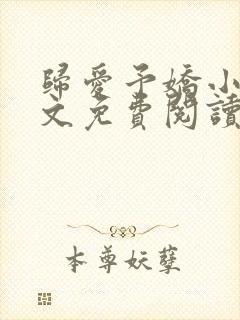 歸愛予嬌小
文免費閱讀
本尊妖孽